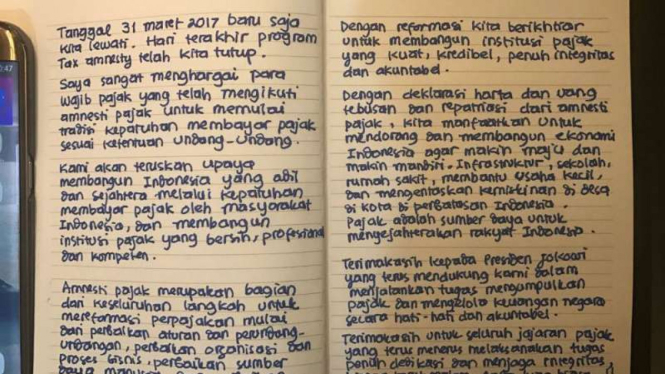 Tanggal 31 maret 2017 baru saja
kita lewati. Hari terakhir program
Tax amnesty telah kita tutup.
Saya sangat menghargai para
wajib pajak yang telah mengikuti
amnesti pajak untuk memulai
tradisi kepatuhan membayar pajak
sesuai ketentuan undang-undang.
Kami akan teruskan upaya
membangun Indonesia yang adil
dan sejahtera melalui kepatuhan
membayar pajak oleh masyarakat
Indonesia, dan membangun
institusi pajak yang bersih, profesional
dan kompeten.
Amnesti pajak merupakan bagian
dari keseluruhan langkah untuk
mereformasi perpajakan mulai
dari perbaikan aturan dan perundang-
undangan, perbaikan organisasi dan
proses bisnis, perbaikan sumber
daya
Dengan reformasi kita berikhtiar
untuk membangun institusi pajak
yang kuat, kredibel, penuh integritas
dan akuntabel.
Dengan deklarasi harta dan uang
tebusan dan repatriasi dari amnesti
pajak, kita manfaatkan untuk
mendorong dan membangun ekonomi
Indonesia agar makin maju dan
makin mandiri. Infrastruktur, sekolah,
rumah sakit, membantu usaha kecil,
dan mengentaskan kemiskinan di desa
di kota di perbatasan Indonesia.
Pajak adalah sumber daya untuk
mensejahterakan rakyat Indonesia.
Terimakasih kepada Presiden Jokowi
yang terus mendukung kami dalam
menjalankan tugas mengumpulkan
pajak dan mengelola keuangan negara
secara hati-hati dan akuntabel.
Terimakasih untuk seluruh jajaran pajak
yang terus menerus melaksanakan tugas
penuh dedikasi dan menjaga integritas,